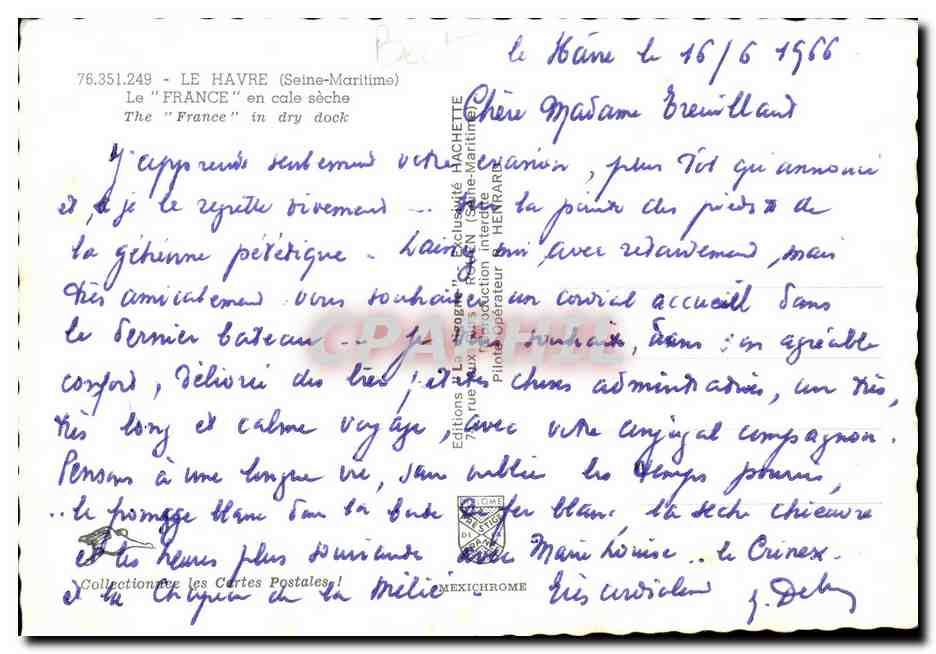 le Hâvre le 16/6 1966
76.351.249 - LE HAVRE (Seine-Maritime)
Le "FRANCE" en cale sèche
The "France" in dry dock
Chère Madame
J'apprends seulement votre évasion, plus tôt qu'annoncé
et, je le regrette vivement ... sur la pointe des pieds de
la géhenne . Laissez moi, avec retardement, mais
très amicalement vous souhaiter un cordial accueill dans
le dernier bateau ... je vous souhaite, dans un agréable
confort, délivrée des et des choses administratives, un très,
très long et calme voyage, avec votre conjugal compagnon.
Pensons à une longue vie, sans oublier les temps
.. le fromage blanc dans la boite de fer blanc, la
et les heures plus avec Marie Louise .. le
et la de la
Très cordialement
Editions "La Cigogne" - Exclusivité HACHETTE
ROUEN (Seine-Maritime)
reproduction interdite
Pilote Opérateur R. HENRARD
CPAPHIL
DIPLOME
PRESTIGE
DE LA
FRANCE
Collectionnez les Cartes Postales !
MEXICHROME